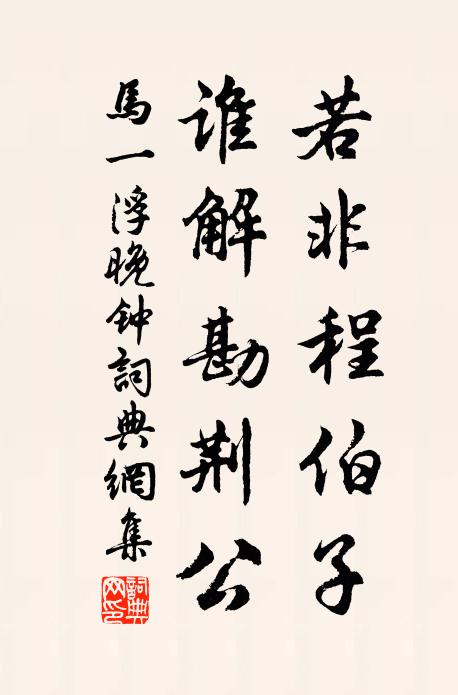 若非程伯子
谁解勘荆公
馬一浮晚钟詞典網集
詞典网印